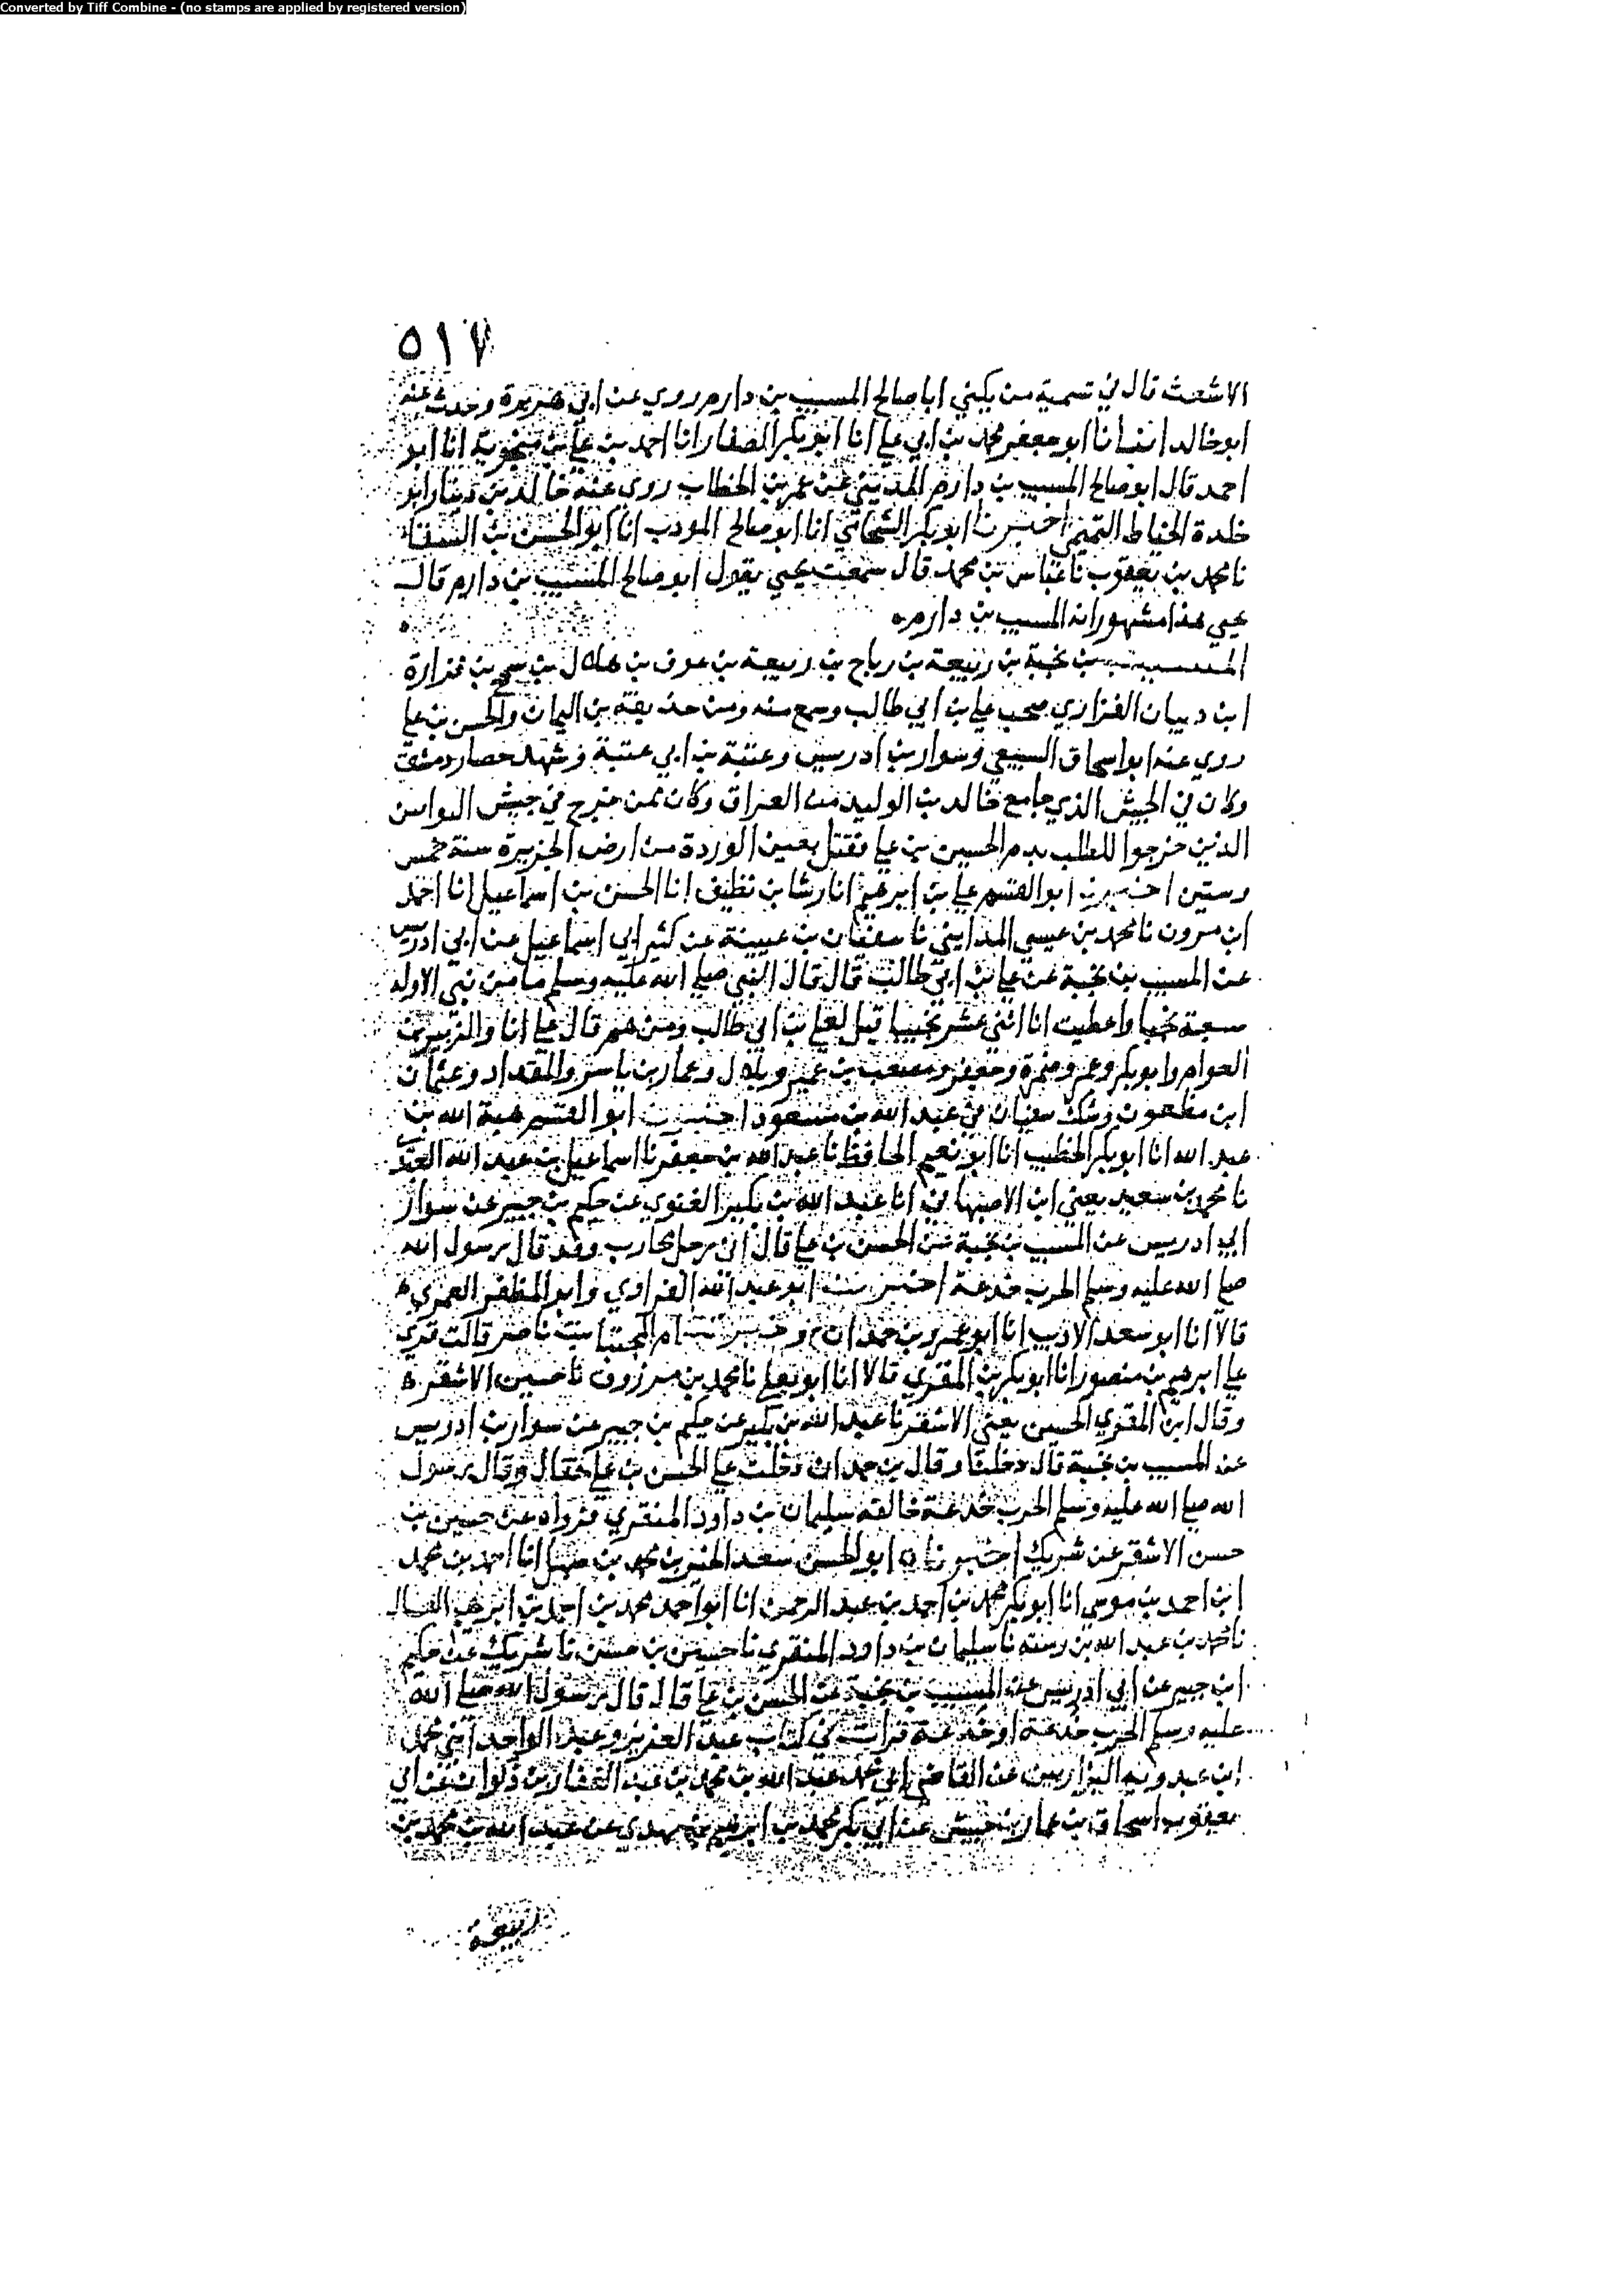 Converted by Tiff Combine - (no stamps are applied by registered version)
٥١٧
الاشعث قال في تسمية من يكني ابا صالح المسيب بن دارم روي عن ابي هريرة وحدث عنه
ابو خالد انبانا ابو جعفر محمد بن ابي علي انا ابو بكر الصفار انا احمد بن علي بن منجويه انا ابو
احمد قال ابو صالح المسيب بن دارم عن عمر بن الخطاب روى عنه خالد بن دينار ابو
خلدة الخياط التميمي اخبرنا ابو بكر الشحامي انا ابو صالح المودب انا ابو الحسن بن السقا
نا محمد بن يعقوب نا عباس بن محمد قال سمعت يحيي يقول ابو صالح المسيب بن دارم قال
يحيي هذا مشهور انه المسيب بن دارم
المسيب بن نجبة بن ربيعة بن رياح بن ربيعة بن عوف بن هلال بن شمخ بن فزارة
ابن ديبان الفزاري صحب علي بن ابي طالب وسمع منه ومن حذيفة بن اليمان والحسن بن علي
روي عنه ابو اسحاق السبيعي وسوار بن ادريس وعتبة بن ابي عتبة وشهد حصار دمشق
وكان في الجيش الذي جا مع خالد بن الوليد من العراق وكان ممن خرج في جيش التوابين
الذين خرجوا للطلب بدم الحسين بن علي فقتل بعين الوردة من ارض الجزيرة سنة خمس
وستين اخبرنا ابو القسم علي بن ابرهيم انا رشا بن نظيف انا الحسن بن اسماعيل انا احمد
ابن مرون نا محمد بن عيسي المدايني نا سفيان بن عيينة عن كثير ابي اسماعيل عن ابي ادريس
عن المسيب بن نجبة عن علي بن ابي طالب قال قال النبي صلي الله عليه وسلم ما من نبي الا وله
سبعة نجبا واعطيت انا اثني عشر نجيبا قيل لعلي بن ابي طالب ومن هم قال علي انا والزبير بن
العوام وابو بكر وعمر وحمزة وجعفر ومصعب بن عمير وبلال وعمار بن ياسر والمقداد وعثمان
ابن مظعون وشك سفيان في عبد الله بن مسعود اخبرنا ابو القسم هبة الله بن
عبد الله انا ابو بكر الخطيب انا ابو نعيم الحافظ نا عبد الله بن جعفر نا اسماعيل بن عبد الله العبدي
نا محمد بن سعيد يعني ابن الاصبهاني انا عبد الله بن بكير الغنوي عن حكيم بن جبير عن سوار
ابي ادريس عن المسيب بن نجبة عن الحسن بن علي قال اني رجل محارب وقد قال رسول الله
صلي الله عليه وسلم الحرب خدعة اخبرنا ابو عبد الله الفراوي وابو المظفر القشيري
قالا انا ابو سعد الاديب انا ابو عمرو بن حمدان واخبرتنا ام المجتبا بنت ناصر قالت قري
علي ابرهيم بن منصور انا ابو بكر بن المقري قالا انا ابو يعلي نا محمد بن مرزوق نا حسين الاشقر
وقال ابن المقري الحسين يعني الاشقر نا عبد الله بن بكير عن حكيم بن جبير عن سوار بن ادريس
عن المسيب بن نجبة قال دخلنا وقال بن حمدان دخلت علي الحسن بن علي فقال وقال رسول
الله صلي الله عليه وسلم الحرب خدعة خالفه سليمان بن داود المنقري فرواه عن حسين بن
حسن الاشقر عن شريك اخبرناه ابو الحسن سعد الخير بن محمد بن سهل انا احمد بن محمد
ابن احمد بن موسي انا ابو بكر محمد بن احمد بن عبد الرحمن انا ابو احمد محمد بن احمد بن ابرهيم العسال
نا محمد بن عبد الله بن رسته نا سليمان بن داود المنقري نا حسين بن حسن نا شريك عن حكيم
ابن جبير عن ابي ادريس عن المسيب بن نجبة عن الحسن بن علي قال قال رسول الله صلي الله
عليه وسلم الحرب خدعة او خدعة قرات في كتاب عبد العزيز وعبد الواحد ابني محمد
ابن عبدويه الشيرازيين عن القاضي ابي محمد عبد الله بن محمد بن عبد الغفار بن ذكوان عن ابي
يعقوب اسحاق بن عمار بن حبيش عن ابي بكر محمد بن ابرهيم بن مهدي عن عبد الله بن محمد بن
ربيعة